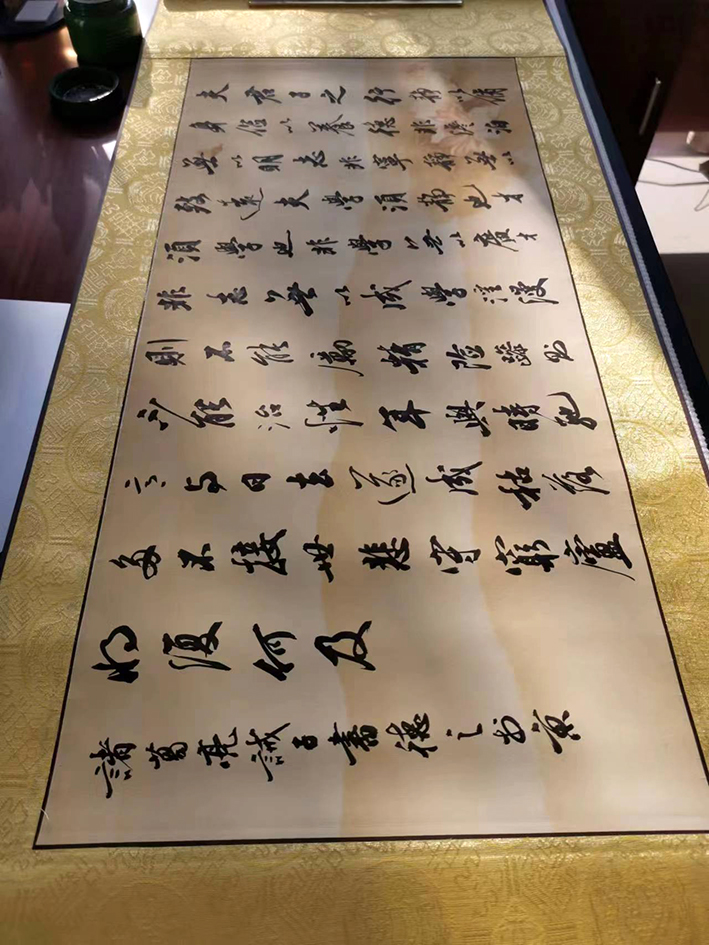 夫君子之行静以脩
身儉以養德非澹泊
無以明志非寧靜無以
致遠夫學須靜也才
須學也非學無以廣才
非志無以成學淫慢
則不能勵精險躁則
不能治性年與時馳
意与日去遂成枯落
多不接世悲守窮廬
将復何及
諸葛亮誡子書德之书